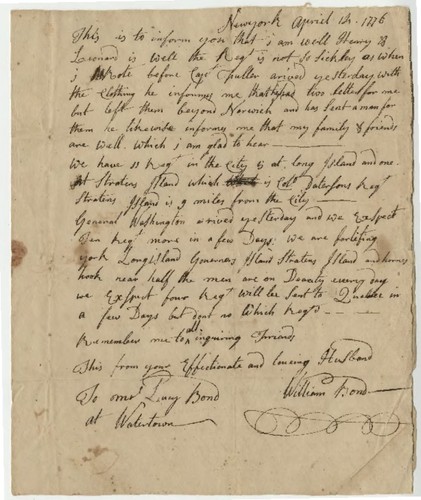 Newyork April 14. 1776
This is to inform you that i am well Henry &
Leonard is well the Regt is not so Sickley as when
i Wrote before Capt Fuller arived yesterday with
the Clothing he informs me that he had two letters for me
but left them beyond Norwich and has Sent a man for
them he likewise informs me that my family & friends
are well. which i am glad to hear
We have 11 Regt in the City 5 at long Island and one
At Stratens Island which is Colo Patersons Regt
Stratens Island is 9 miles from the City
General Washington arived yesterday and we Expect
Ten Regt more in a few Days: we are fortifing
york Long Island Governers Island Stratens Island and
hook near half the men are on Deauty every day
we Expect four Regt Will be Sent to Quebec in
a few Days but not no Which Regts
Remember me to all inquiring Friends
This from your Effectionate and loueing Husband
To mrs Lucy Bond William Bond
at Watertown